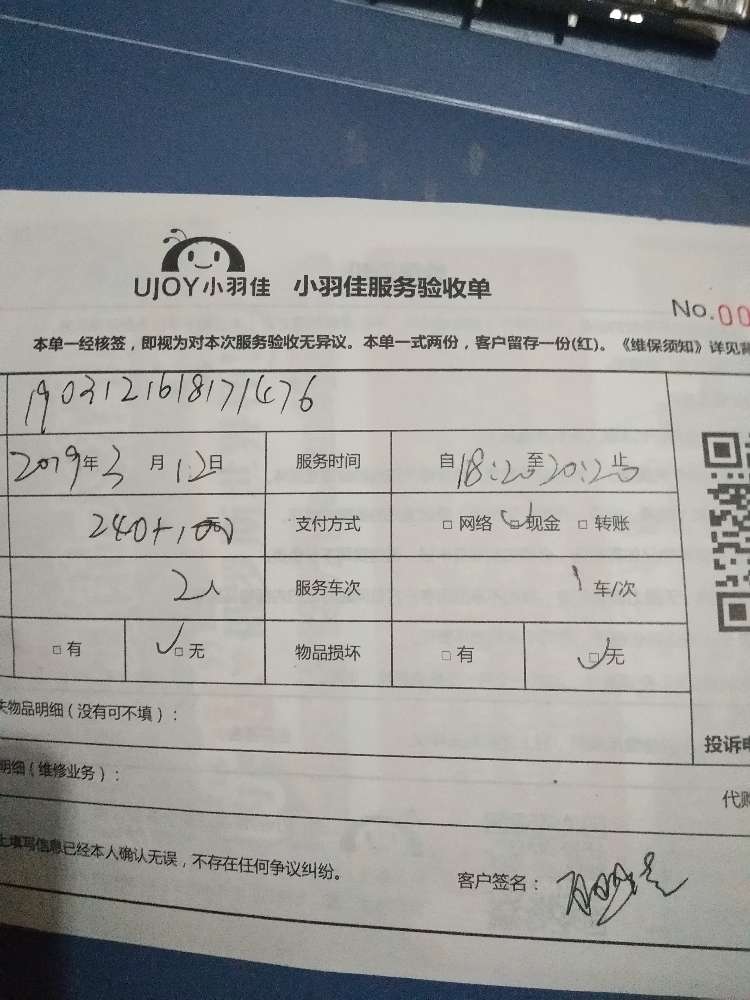 UJOY小羽佳 小羽佳服务验收单
No.00
本单一经核签，即视为对本次服务验收无异议。本单一式两份，客户留存一份(红)。《维保须知》详见背
1903121618171476
2019年3月12日 服务时间 自18:20至20:20止
240+100元 支付方式 □网络 □现金 □转账
2人 服务车次 1车/次
□有 □无 物品损坏 □有 □无
失物品明细（没有可不填）：
投诉电
明细（维修业务）：
代购
上填写信息已经本人确认无误，不存在任何争议纠纷。
客户签名：